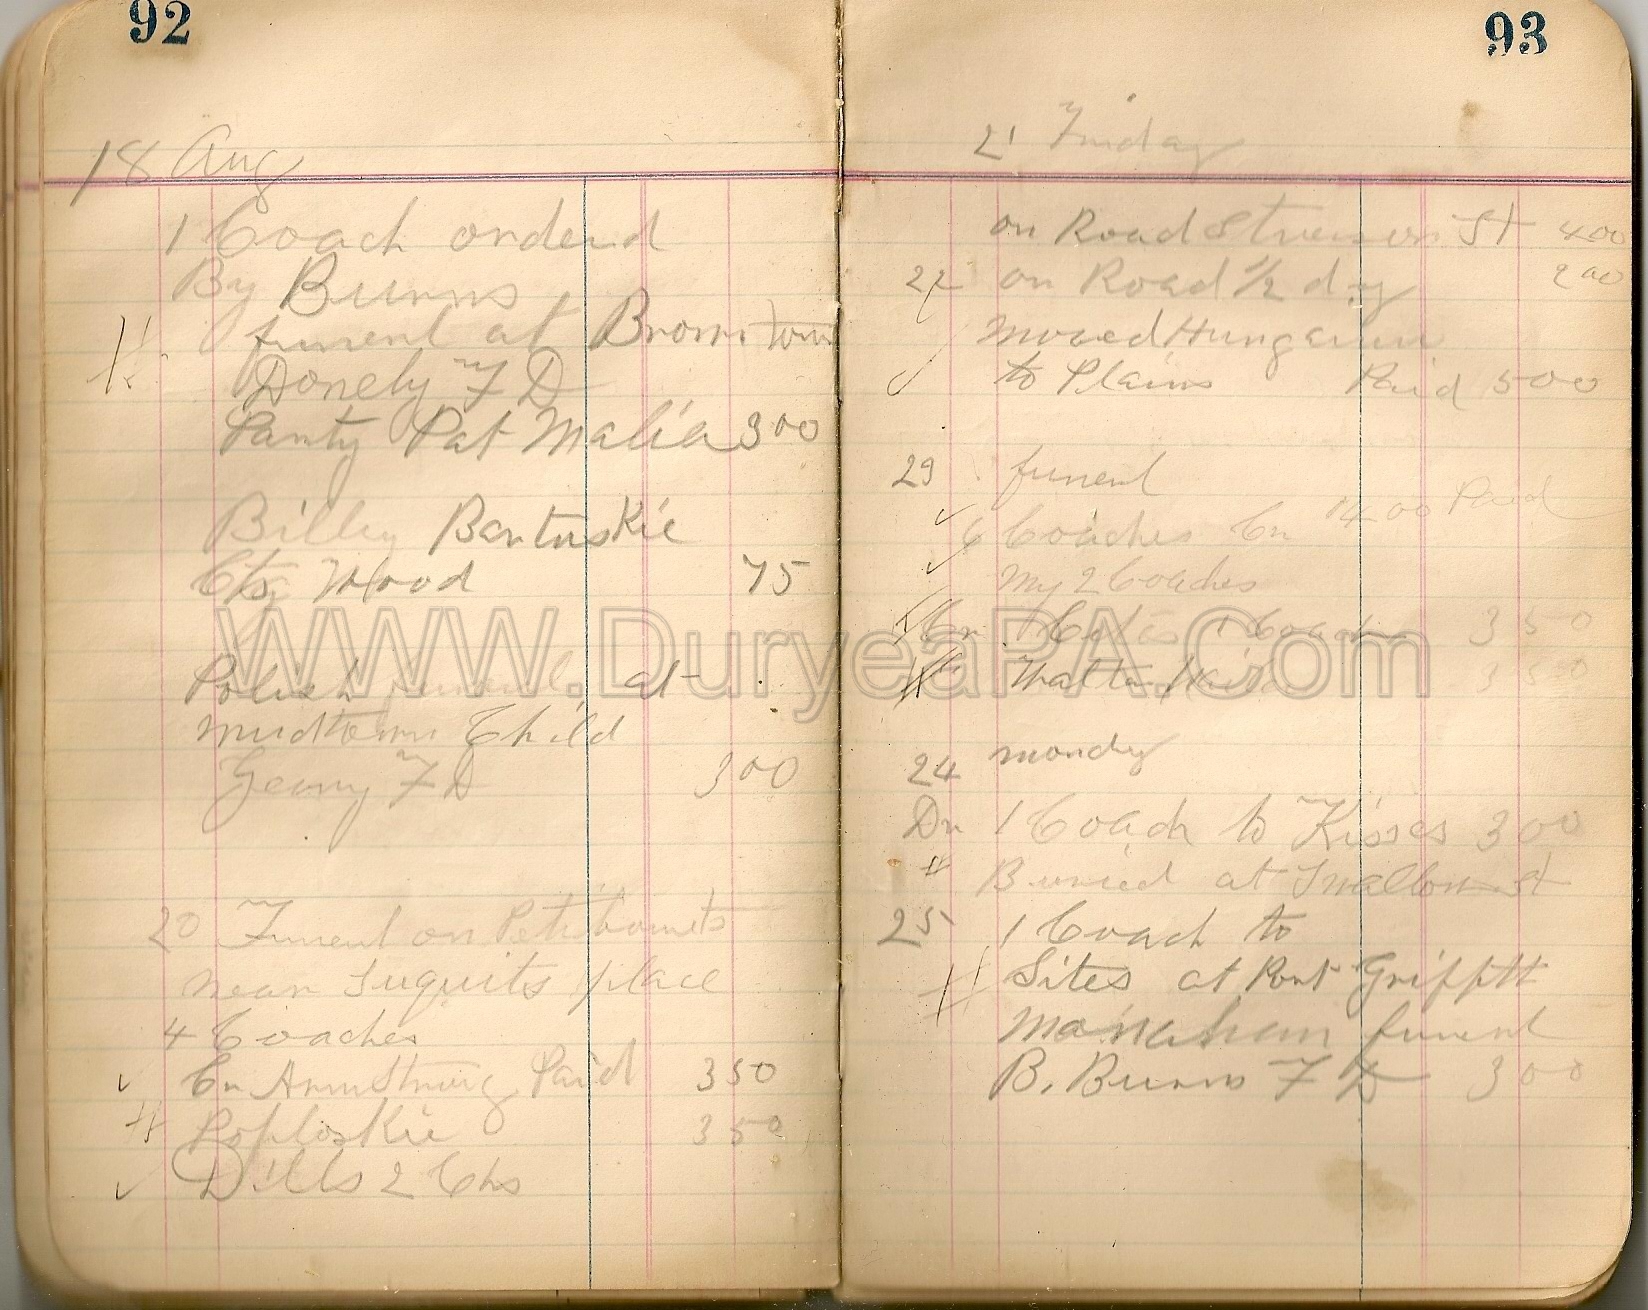 92
18 Aug
1 Coach orderd
By Burns
funerl at Browntown
Donely F D
Party Pat Malia 300
Billey Bartuskie
Ctg Wood 75
Polish funeral at
midtown Child
Geary F D 300
20 Funerl on
near place
4 Coaches
Cr Armstrong Paid 350
Poploskie 350
Dills 2 Chs
93
21 Friday
on Road St 400
22 on Road 1/2 dy 200
moved Hungarian
to Plains Paid 500
29 funerl
6 Coaches Cr 14 00 Paid
my 2 Coaches
Cr 1 Coach 350
350
24 monday
Dr 1 Coach to Kisses 300
Buried at Swallow st
25 1 Coach to
Sites at Port Griffith
Manahan funerl
B. Burns F D 300
WWW.DuryeaPA.Com